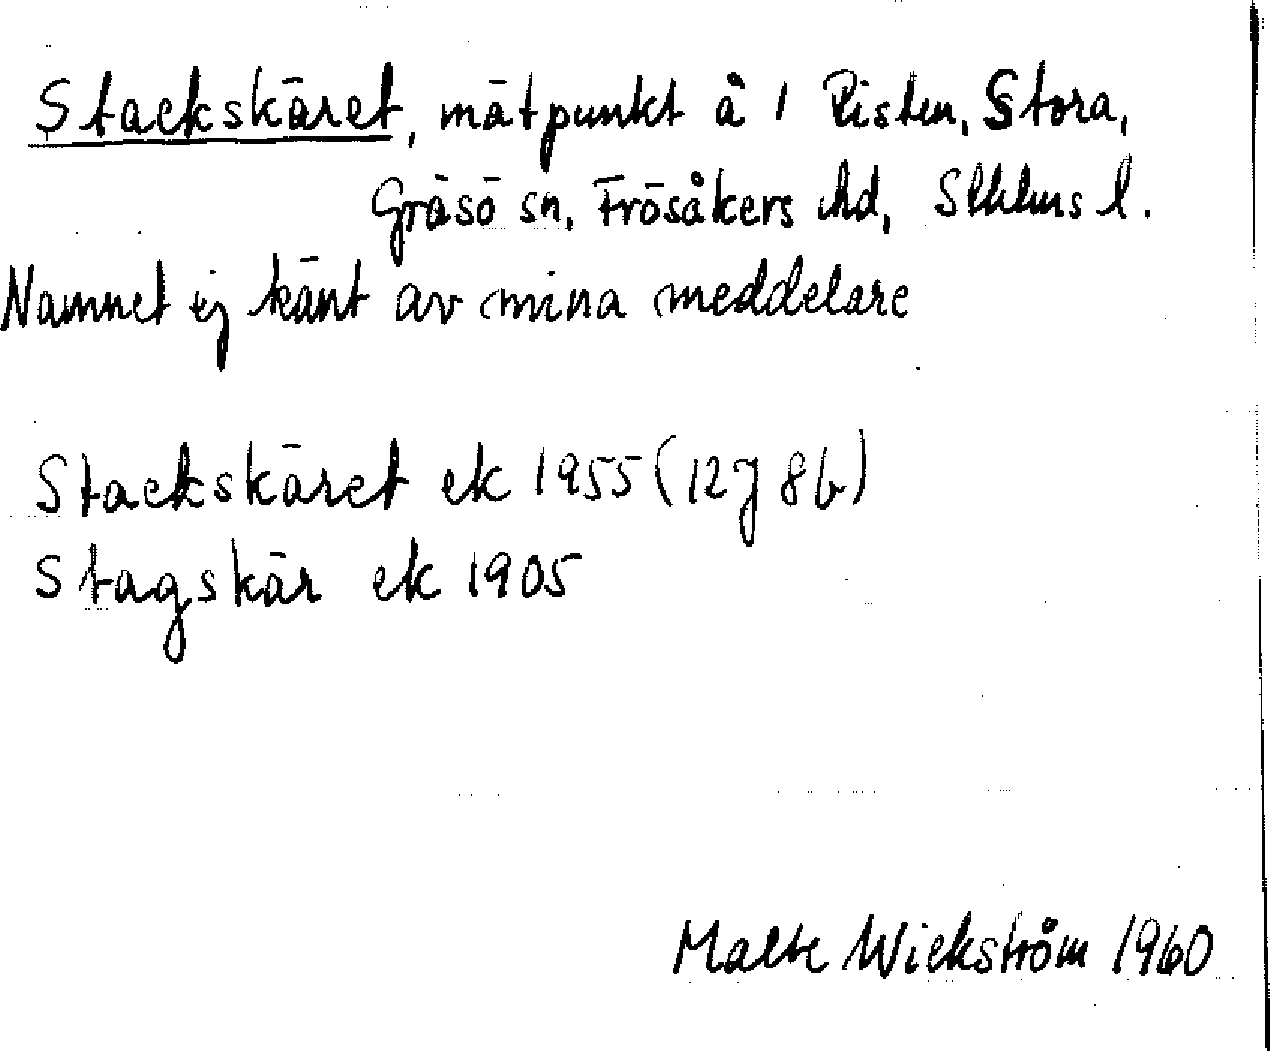 Stackskäret, mätpunkt å 1 Risten, Stora,
Gräsö sn, Frösåkers hd, Sthlms l.
Namnet ej känt av mina meddelare
Stackskäret ek 1955 (12j 8b)
Stagskär ek 1905
Malte Wickström 1960